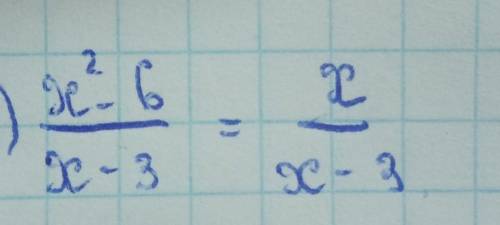 ) x² - 6 / x - 3 = x / x - 3